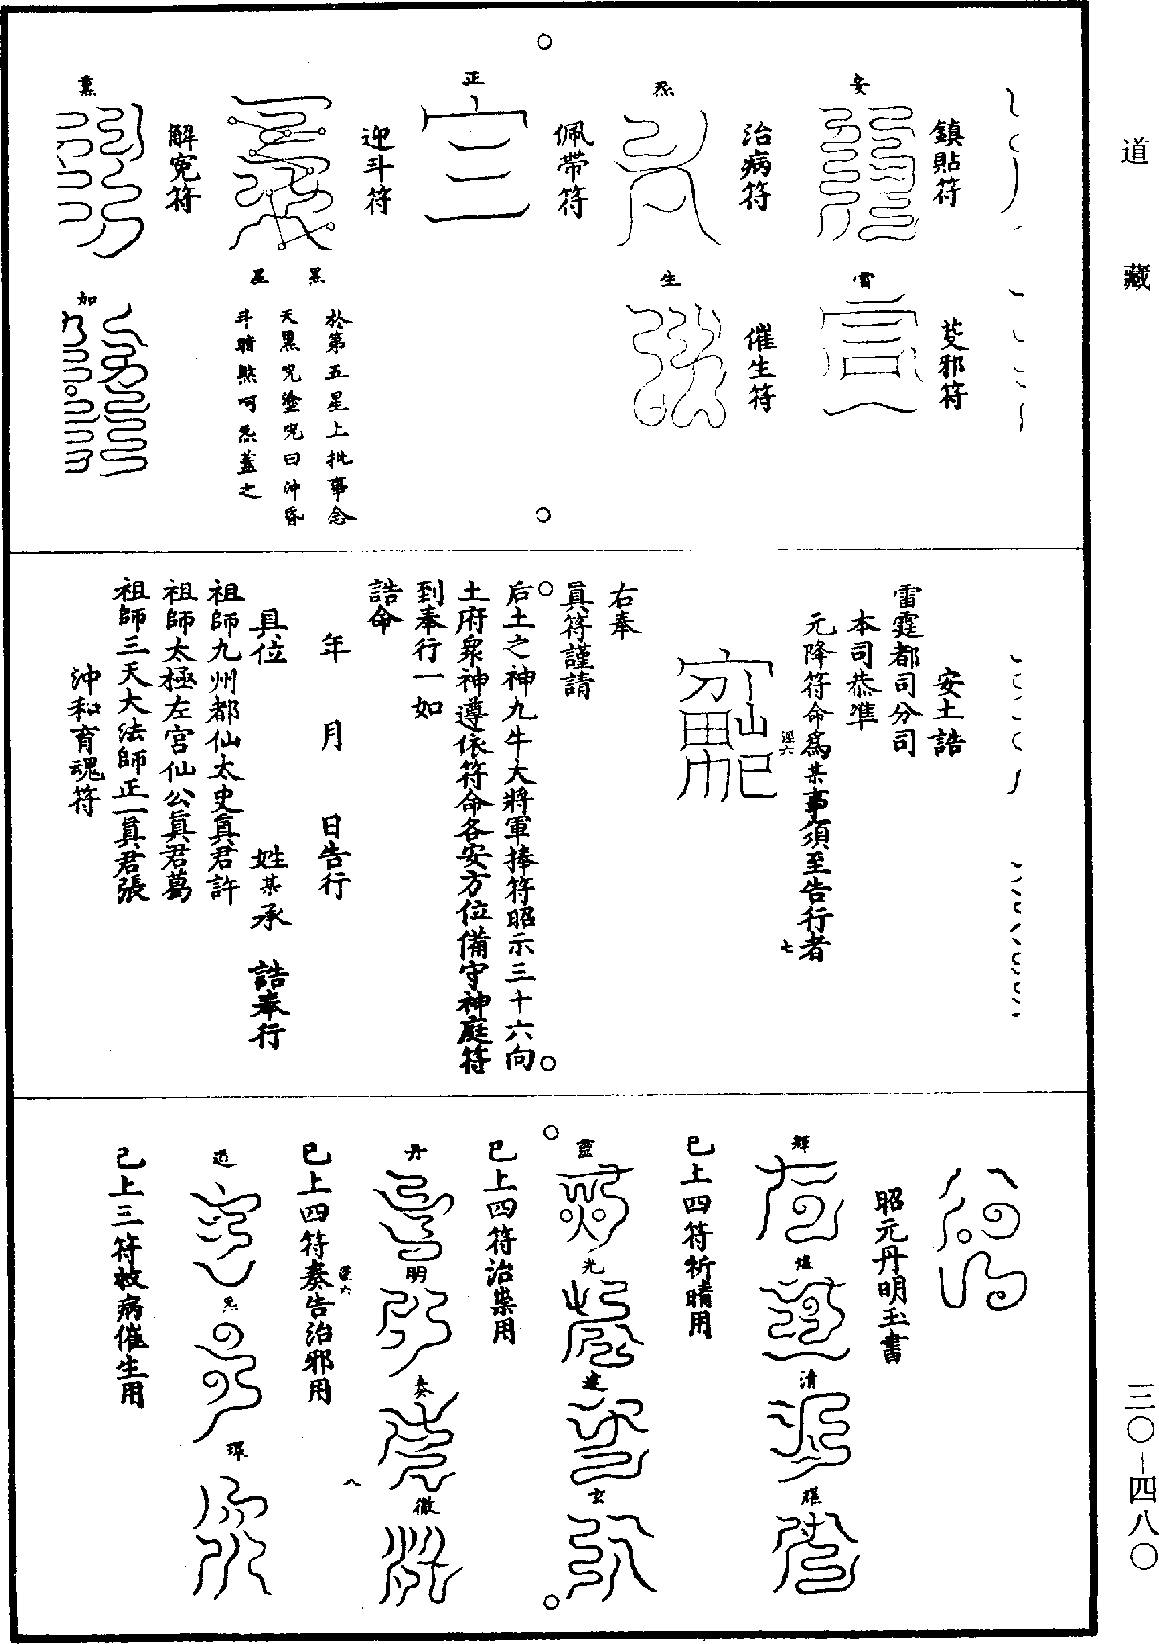 道藏
安
鎮貼符
雷
芟邪符
炁
治病符
生
催生符
正
佩帶符
迎斗符
黑
星
於第五星上批事念
天罡咒塗咒曰沖昏
斗暗黙呵炁蓋之
解冤符
加
安土誥
雷霆都司分司
本司恭準
元降符命爲某事須至告行者
七
右奉
眞符謹請
后土之神九牛大將軍捧符昭示三十六向
土府衆神遵依符命各安方位備守神庭符
到奉行一如
誥命
年 月 日告行
具位 姓某承 誥奉行
祖師九州都仙太史眞君許
祖師太極左宮仙公眞君葛
祖師三天大法師正一眞君張
沖和育魂符
昭元丹明玉書
輝
清
已上四符祈晴用
靈
光
玄
已上四符治祟用
丹
明
奏
徹
已上四符奏告治邪用
八
炁
已上三符救病催生用
三〇-四八〇